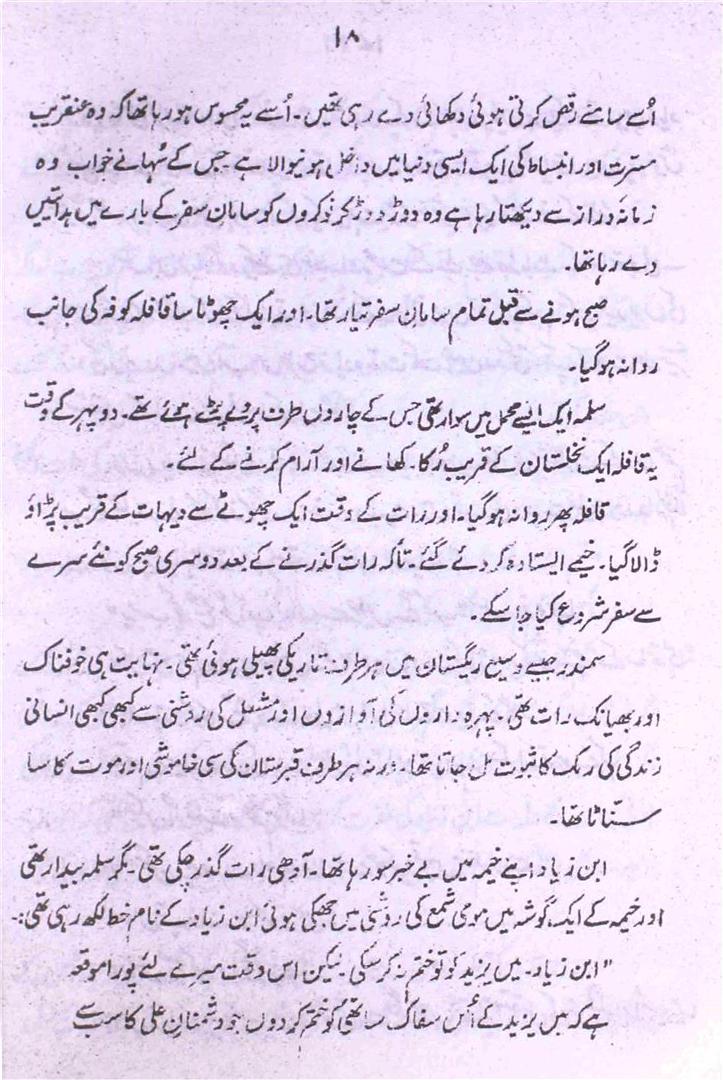 ۱۸
اُسے سامنے رقص کرتی ہوئی دکھائی دے رہی تھیں۔ اُسے یہ محسوس ہو رہا تھا کہ وہ عنقریب
مسترت اور انبساط کی ایک ایسی دنیا میں داخل ہونیوالا ہے جس کے سُہانے خواب وہ
زمانہ دراز سے دیکھتا رہا ہے وہ دوڑ دوڑ کر نوکروں کو سامان سفر کے بارے میں ہدائتیں
دے رہا تھا۔
صبح ہونے سے قبل تمام سامان سفر تیار تھا۔ اور ایک چھوٹا سا قافلہ کوفہ کی جانب
روانہ ہو گیا۔
سلمہ ایک ایسے محمل میں سوار تھی جس کے چاروں طرف پردے پڑے ہوئے تھے۔ دوپہر کے وقت
یہ قافلہ ایک نخلستان کے قریب رُکا۔ کھانے اور آرام کرنے کے لئے۔
قافلہ پھر روانہ ہو گیا۔ اور رات کے وقت ایک چھوٹے سے دیہات کے قریب پڑاؤ
ڈالا گیا۔ خیمے ایستادہ کر دئے گئے۔ تاکہ رات گذرنے کے بعد دوسری صبح کو نئے سرے
سے سفر شروع کیا جا سکے۔
سمندر جیسے وسیع ریگستان میں ہر طرف تاریکی پھیلی ہوئی تھی۔ نہایت ہی خوفناک
اور بھیانک رات تھی۔ پہرہ داروں کی آوازوں اور مشعل کی روشنی سے کبھی کبھی انسانی
زندگی کی رمک کا ثبوت مل جاتا تھا۔ ورنہ ہر طرف قبرستان کی سی خاموشی اور موت کا سا
سناٹا تھا۔
ابن زیاد اپنے خیمہ میں بے خبر سو رہا تھا۔ آدھی رات گذر چکی تھی۔ مگر سلمہ بیدار تھی
اور خیمہ کے ایک گوشہ میں مومی شمع کی روشنی میں جھکی ہوئی ابن زیاد کے نام خط لکھ رہی تھی:۔
"ابن زیاد۔ میں یزید کو تو ختم نہ کر سکی۔ لیکن اس وقت میرے لئے پورا موقعہ
ہے کہ میں یزید کے اُس سفاک ساتھی کو ختم کر دوں جو دشمنان علی کا سب سے